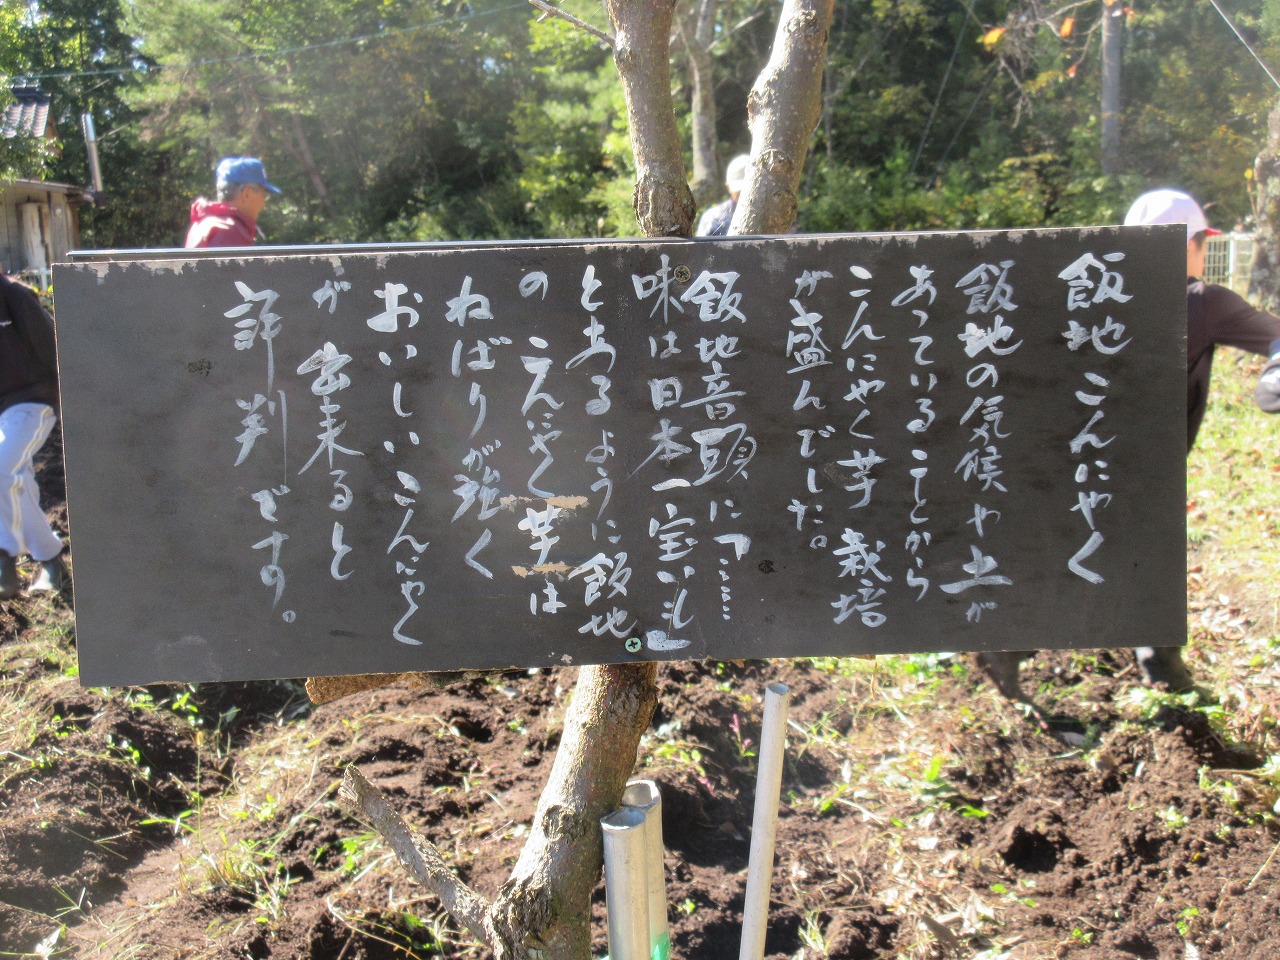 飯地こんにゃく
飯地の気候や土が
あっていることから
こんにゃく芋栽培
が盛んでした。
飯地音頭に「……
味は日本一宝いも」
とあるように飯地
のこんにゃく芋は
ねばりが強く
おいしいこんにゃく
が出来ると
評判です。